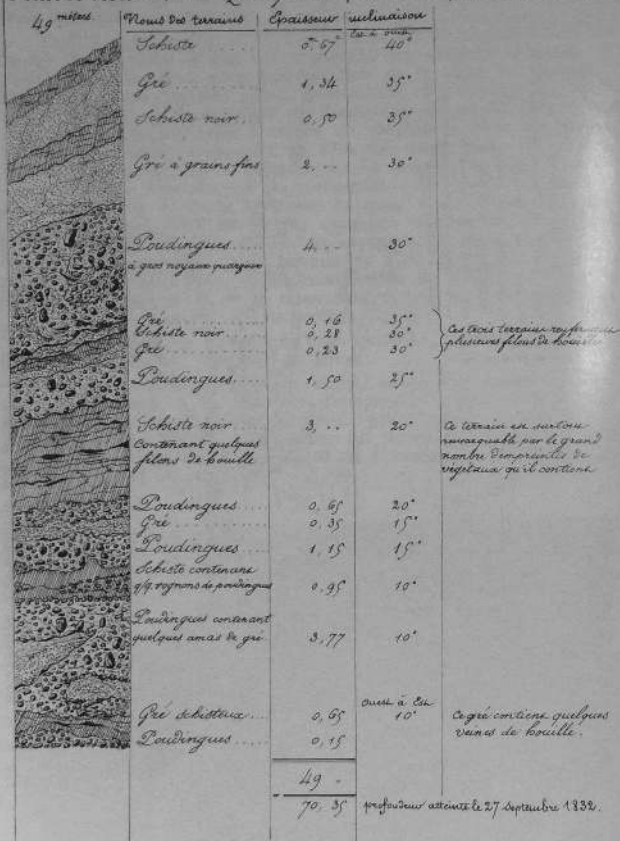 49 mètres.
Noms des terrains Epaisseur inclinaison
Est à ouest
Schiste 0,67 40°
Gré 1,34 35°
Schiste noir 0,50 35°
Gré à grains fins 2, .. 30°
Poudingues 4, .. 30°
à gros noyaux quarzeux
Gré 0,16 35°
Schiste noir 0,28 30°
Gré 0,23 30°
Ces trois terrains renferment
plusieurs filons de houille
Poudingues 1,50 25°
Schiste noir 3, .. 20°
contenant quelques
filons de houille
Ce terrain est surtout
remarquable par le grand
nombre d'empreintes de
végétaux qu'il contient
Poudingues 0,65 20°
Gré 0,35 15°
Poudingues 1,15 15°
Schiste contenant
q/q. rognons de poudingues 0,95 10°
Poudingues contenant
quelques amas de gré 3,77 10°
ouest à Est
Gré schisteux 0,65 10°
Ce gré contient quelques
veines de houille.
Poudingues 0,15
49 -
70,35 profondeur atteinte le 27 septembre 1832.